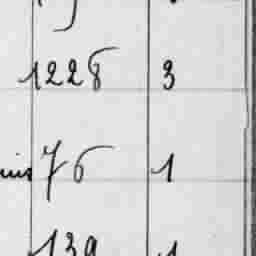 1228 3
76 1
139 1